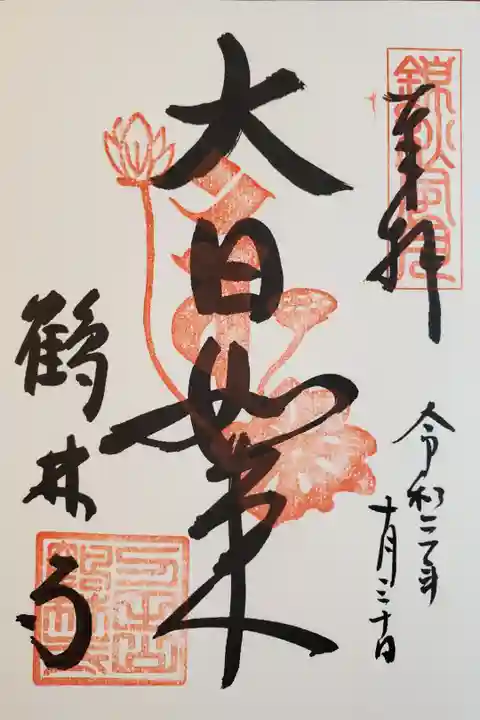 奉拝
令和二年
十月三十日
大日如来
鶴林寺